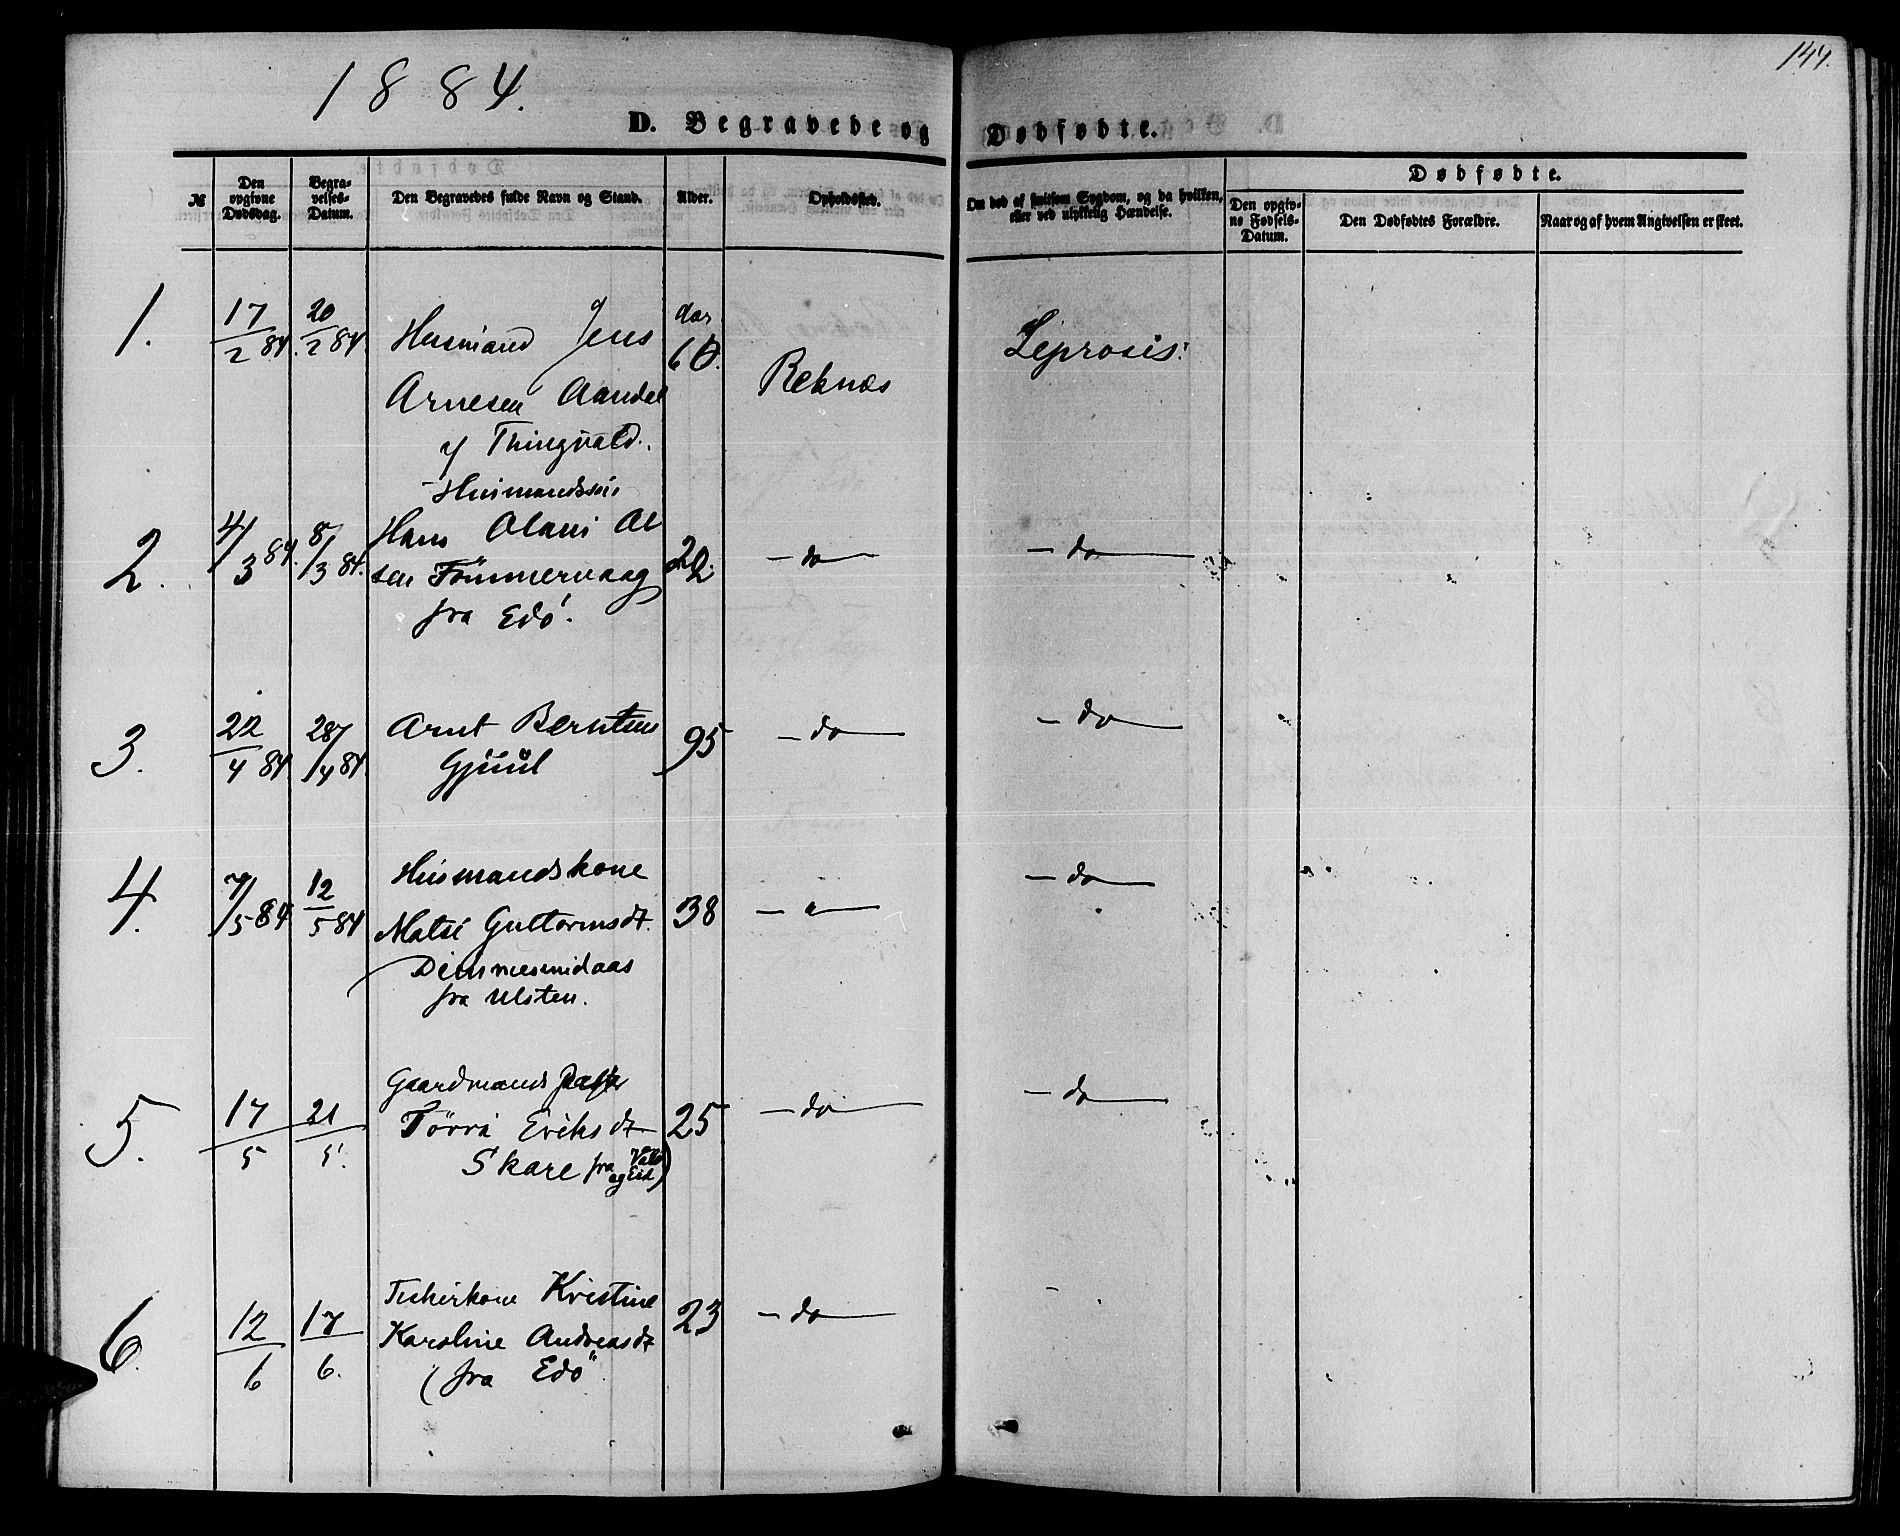 1884.
144.
D. Begravede og Dødfødte.
№
Den opgivne Dødsdag.
Begravelses-Datum.
Den Begravedes fulde Navn og Stand.
Alder.
Opholdssted.
Om død af smitsom Sygdom, og da hvilken, eller ved ulykkelig Hændelse.
Dødfødte.
Den opgivne Fødsels-Datum.
Den Dødfødtes Forældre.
Naar og af hvem Angivelsen er skeet.
1. 17/2 84. 20/2 84. Husmand Jens aar 60. Reknæs Leprosis.
Arnesen Aandal
af Thingvald.
Husmandssøn
2. 4/3 84. 8/3 84. Hans Olaus Ol 22. – do – – do –
sen Tømmervaag
fra Edö.
3. 22/4 84 28/4 84. Arnt Berntsen 95 – do – – do –
Gjûûl
4. 7/5 84 12/5 84 Husmandskone 38 – " – – do –
Matsi Guttormsdt.
fra Ulsten.
5. 17/5 21/5. Gaardmands 25 – do – – do –
Törri Eriksdt
Skare fra Volld og Eid)
6. 12/6 17/6. Fiskerkone Kristine 23 – do –
Karoline Andreasdt
(fra Edö